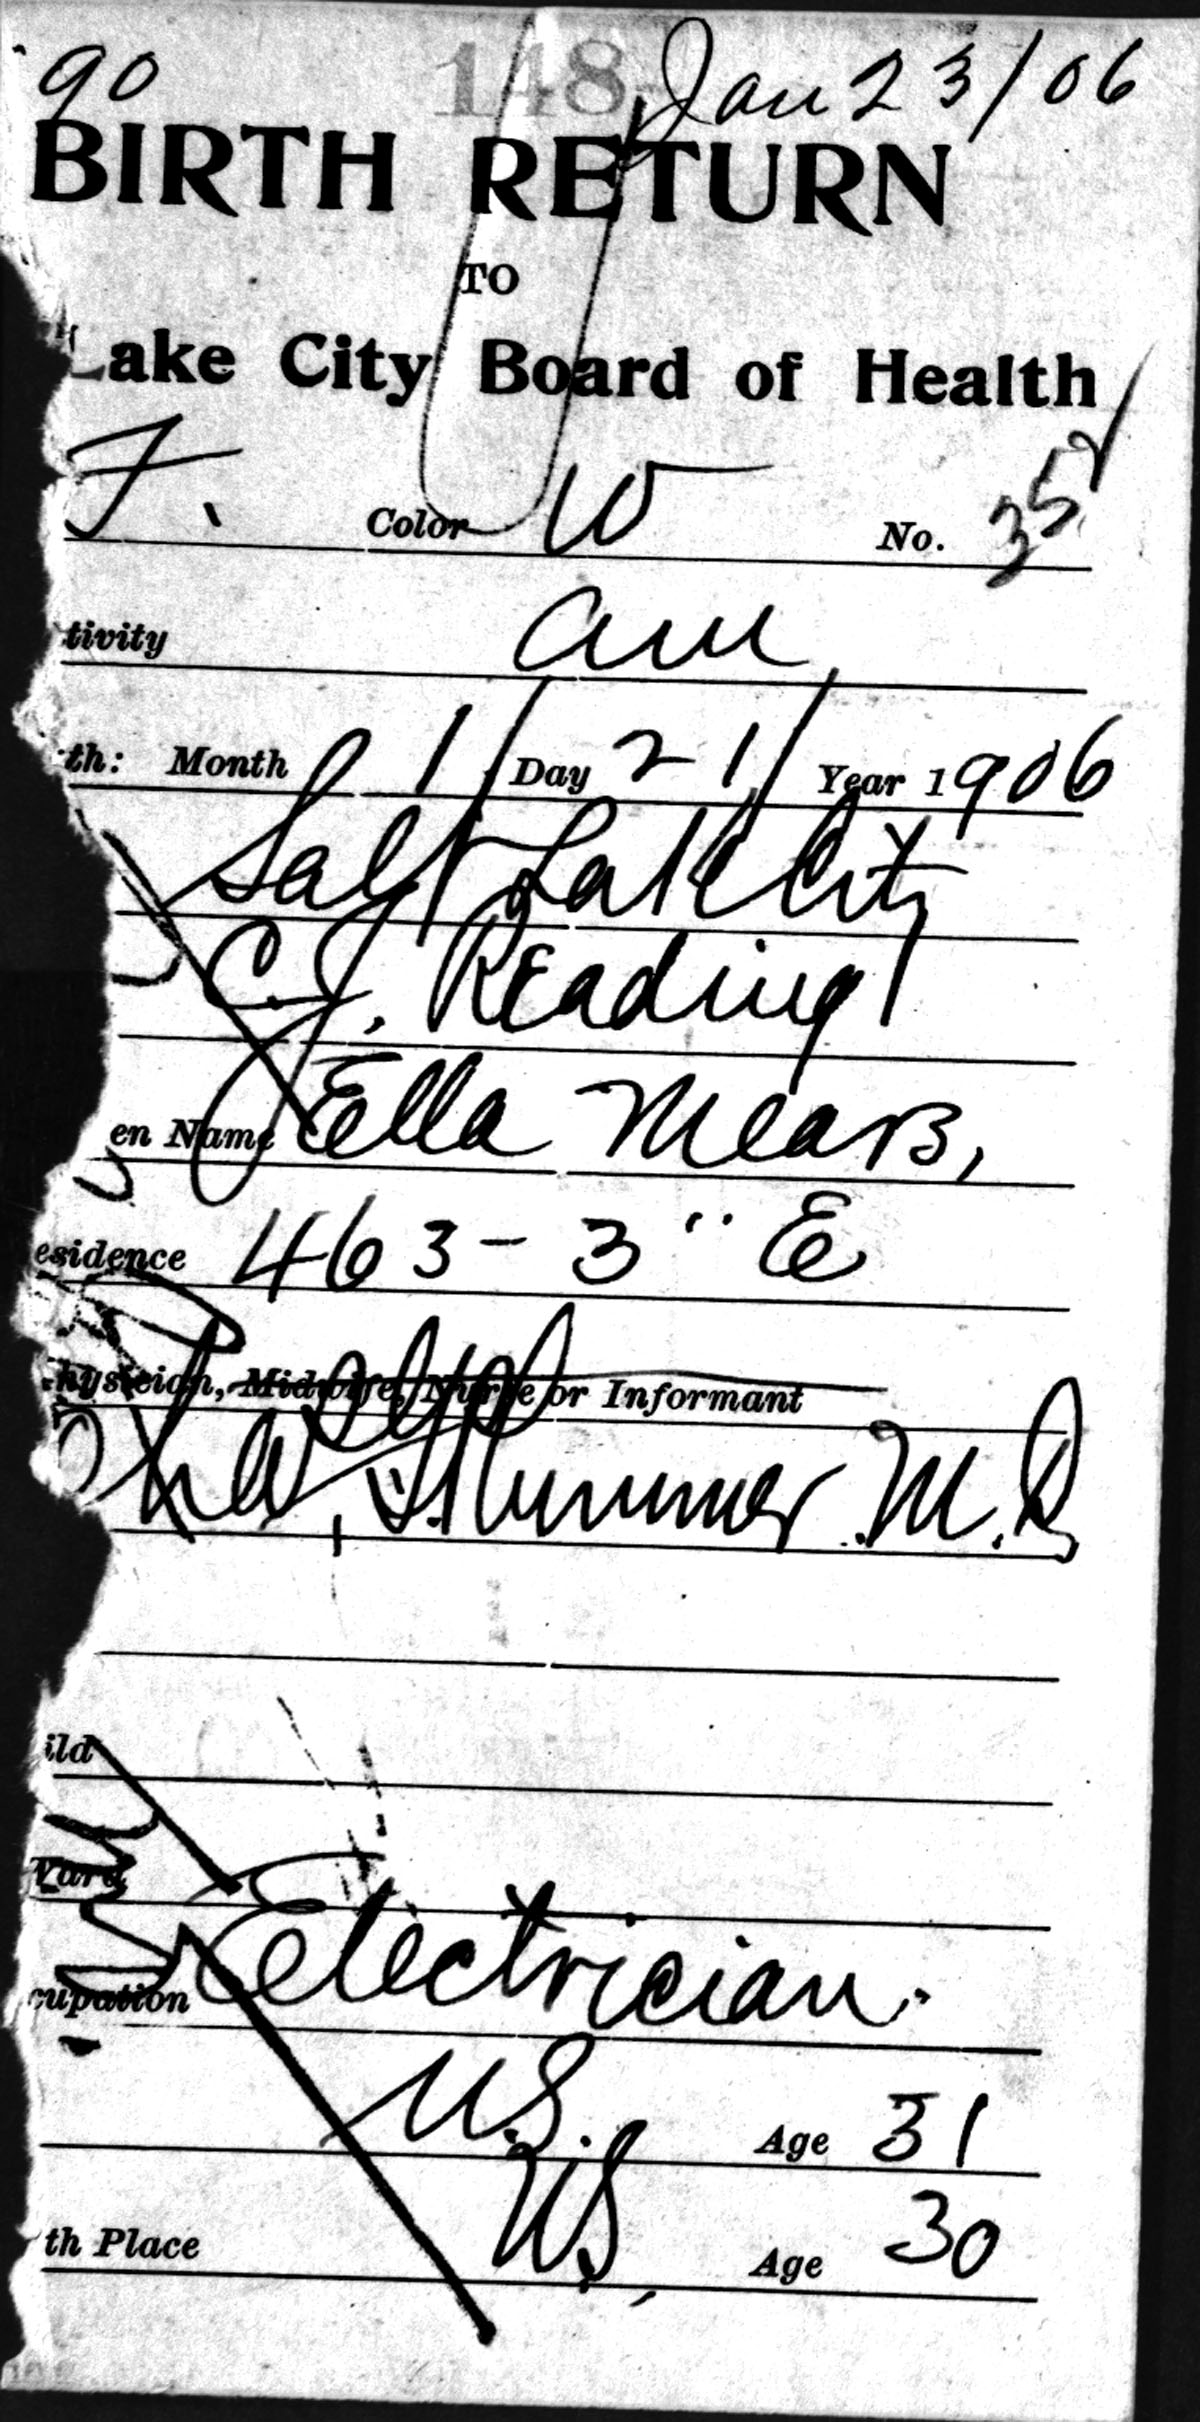 90 148 Jan 23/06
BIRTH RETURN
TO
Lake City Board of Health
F. Color W No. 35
tivity am
th: Month 1/ Day 21/ Year 1906
Salt Lake City
C. J. Reading
en Name Ella Mears,
esidence 463 - 3 '' E
hysician, Midwife, Nurse or Informant
M.D.
ild
Ward
cupation Electrician.
U.S. Age 31
th Place U.S. Age 30